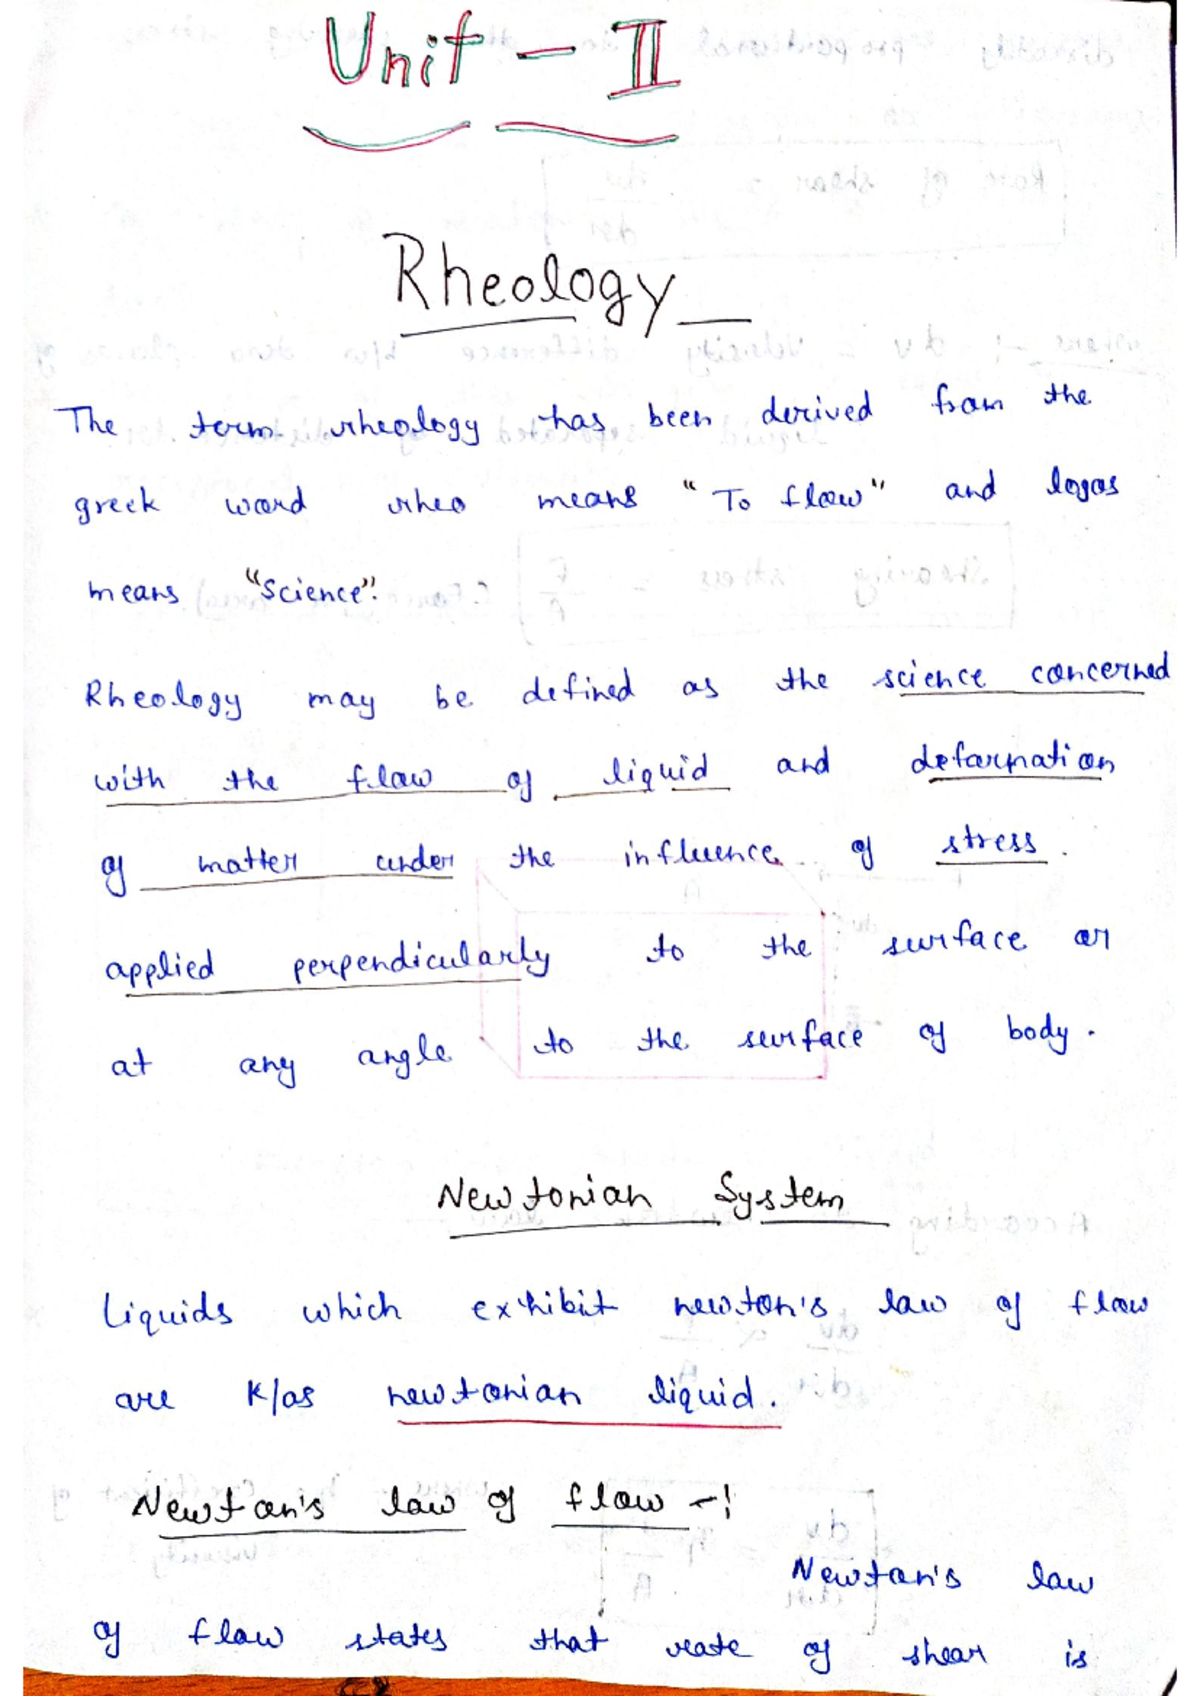 Unit - II
Rheology
The term rheology has been derived from the
greek word rheo means "To flow" and logos
means "Science".
Rheology may be defined as the science concerned
with the flow of liquid and deformation
of matter under the influence of stress.
applied perpendicularly to the surface or
at any angle to the surface of body.
Newtonian System
Liquids which exhibit newton's law of flow
are K/as newtonian liquid.
Newton's law of flow -:
Newton's law
of flow states that rate of shear is